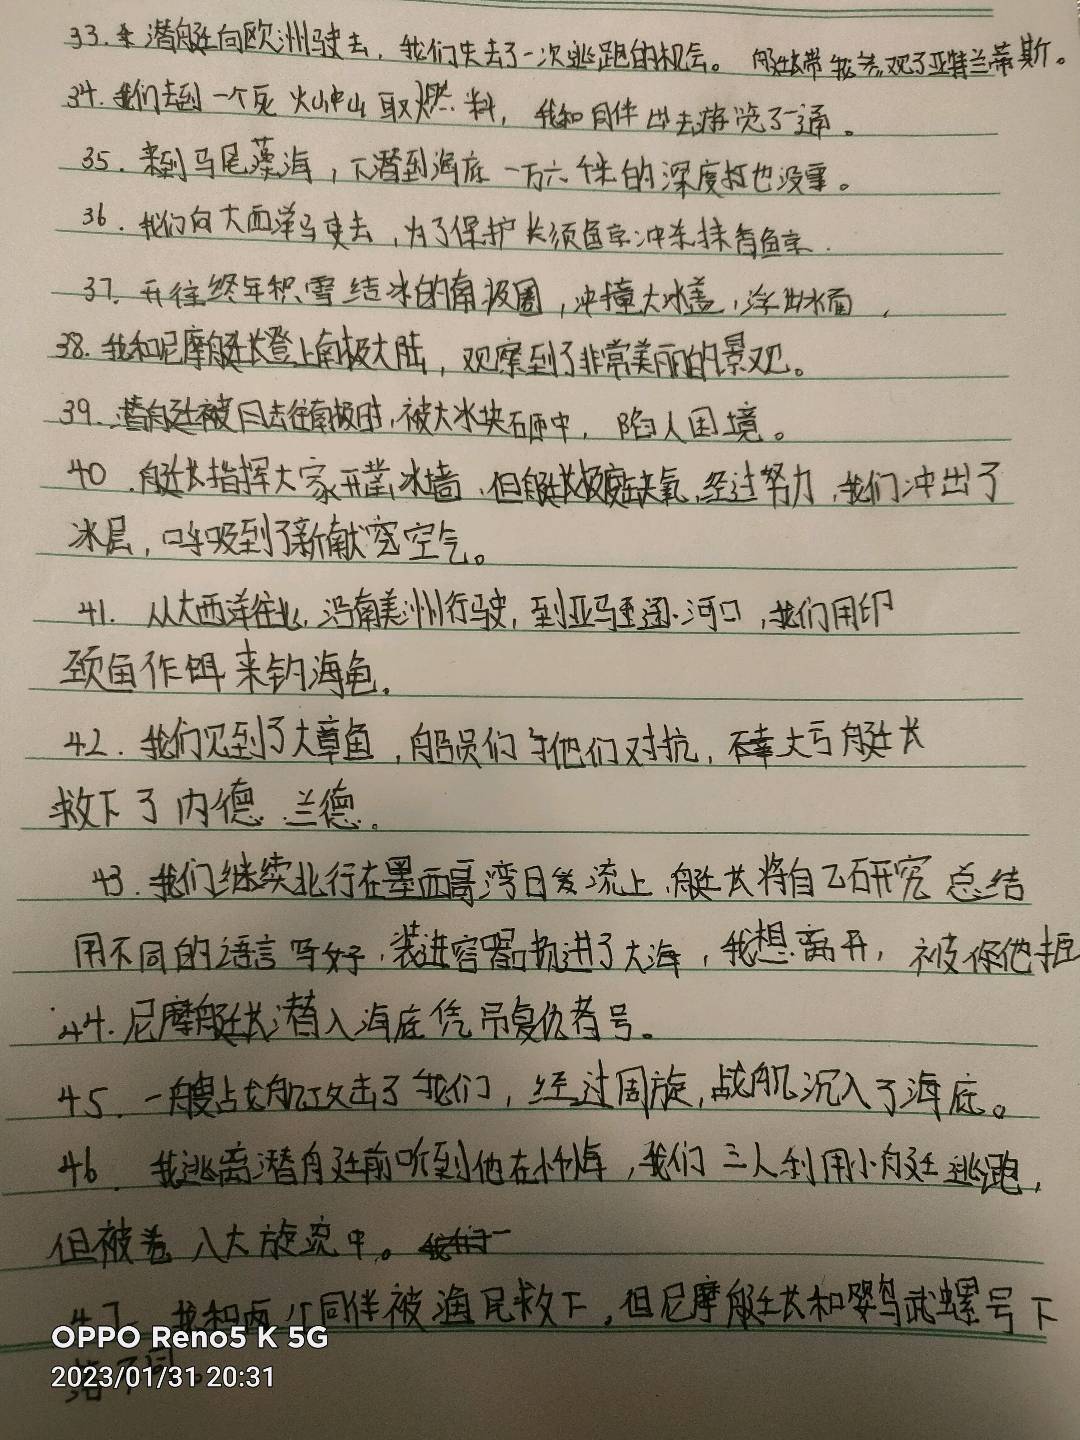 33. 潜艇向欧洲驶去，我们失去了一次逃跑的机会。艇长带我参观了亚特兰蒂斯。
34. 我们去到一个死火山中山取燃料，我和同伴出去游览了一通。
35. 来到马尾藻海，下潜到海底一万六千米的深度板也没事。
36. 我们向大西洋马更去，为了保护长须鱼京冲杀抹香鱼京.
37. 开往终年积雪结冰的南极圈，冲撞大冰盖，浮出水面，
38. 我和尼摩艇长登上南极大陆，观察到了非常美丽的景观。
39. 潜艇被去往南极时，被大冰块砸中，陷人困境。
40. 艇长指挥大家开凿冰墙，但艇长极度缺氧，经过努力，我们冲出了
冰层，呼吸到了新献空气。
41. 从大西洋往北，沿南美洲行驶，到亚马逊河口，我们用印
颈鱼作饵来钓海龟.
42. 我们见到了大章鱼，船员们与他们对抗，大亏艇长
救下了内德.兰德。
43. 我们继续北行在墨西哥湾日发流上，艇长将自己研究总结
用不同的语言写好，装进容器扔进了大海，我想离开，被你他拒
44. 尼摩艇长潜入海底凭吊复仇者号。
45. 一艘占戈舰攻击了我们，经过周旋，战舰沉入了海底。
46. 我逃离潜艇前听到他在忏悔，我们三人利用小艇逃跑，
但被卷入大旋流中。
47. 我和两个同伴被渔民救下，但尼摩艇长和婴鸟武螺号下
OPPO Reno5 K 5G
2023/01/31 20:31
落不